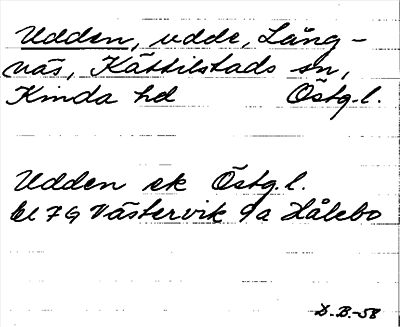 Udden, udde, Lång-
näs, Kättilstads sn,
Kinda hd Östg.l.
Udden ek Östg.l.
bl 7G Västervik 9a Hålebo
D.B.-58